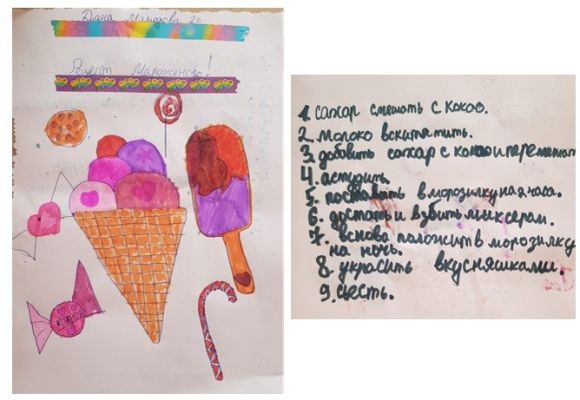 Дана Мамедова 2а
Рецепт Мароженого!
1. сахар смешать с какао.
2. молоко вскипятить.
3. добавить сахар с какао и перемешать
4. астудить.
5. поставить в морозилку на 4 часа.
6. достать и взбить миксерам.
7. внова положить в морозилку
на ночь.
8. украсить вкусняшками.
9. сьесть.